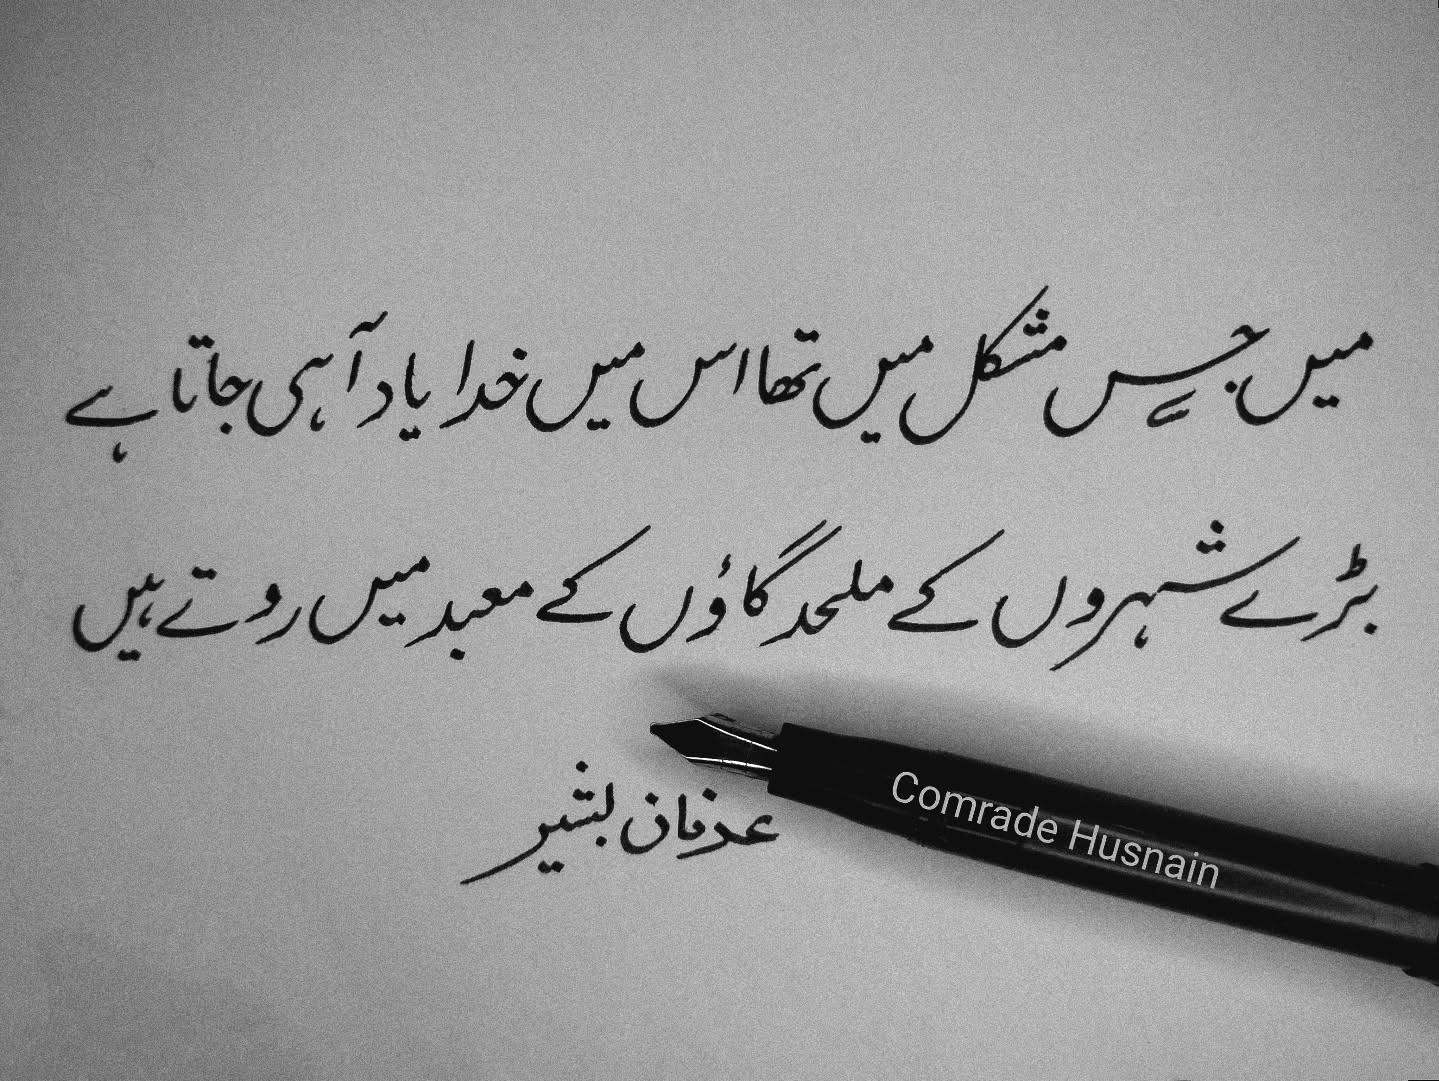 میں جس مشکل میں تھا اس میں خدا یاد آ ہی جاتا ہے
بڑے شہروں کے ملحد گاؤں کے معبد میں روتے ہیں
عدنان بشیر
Comrade Husnain